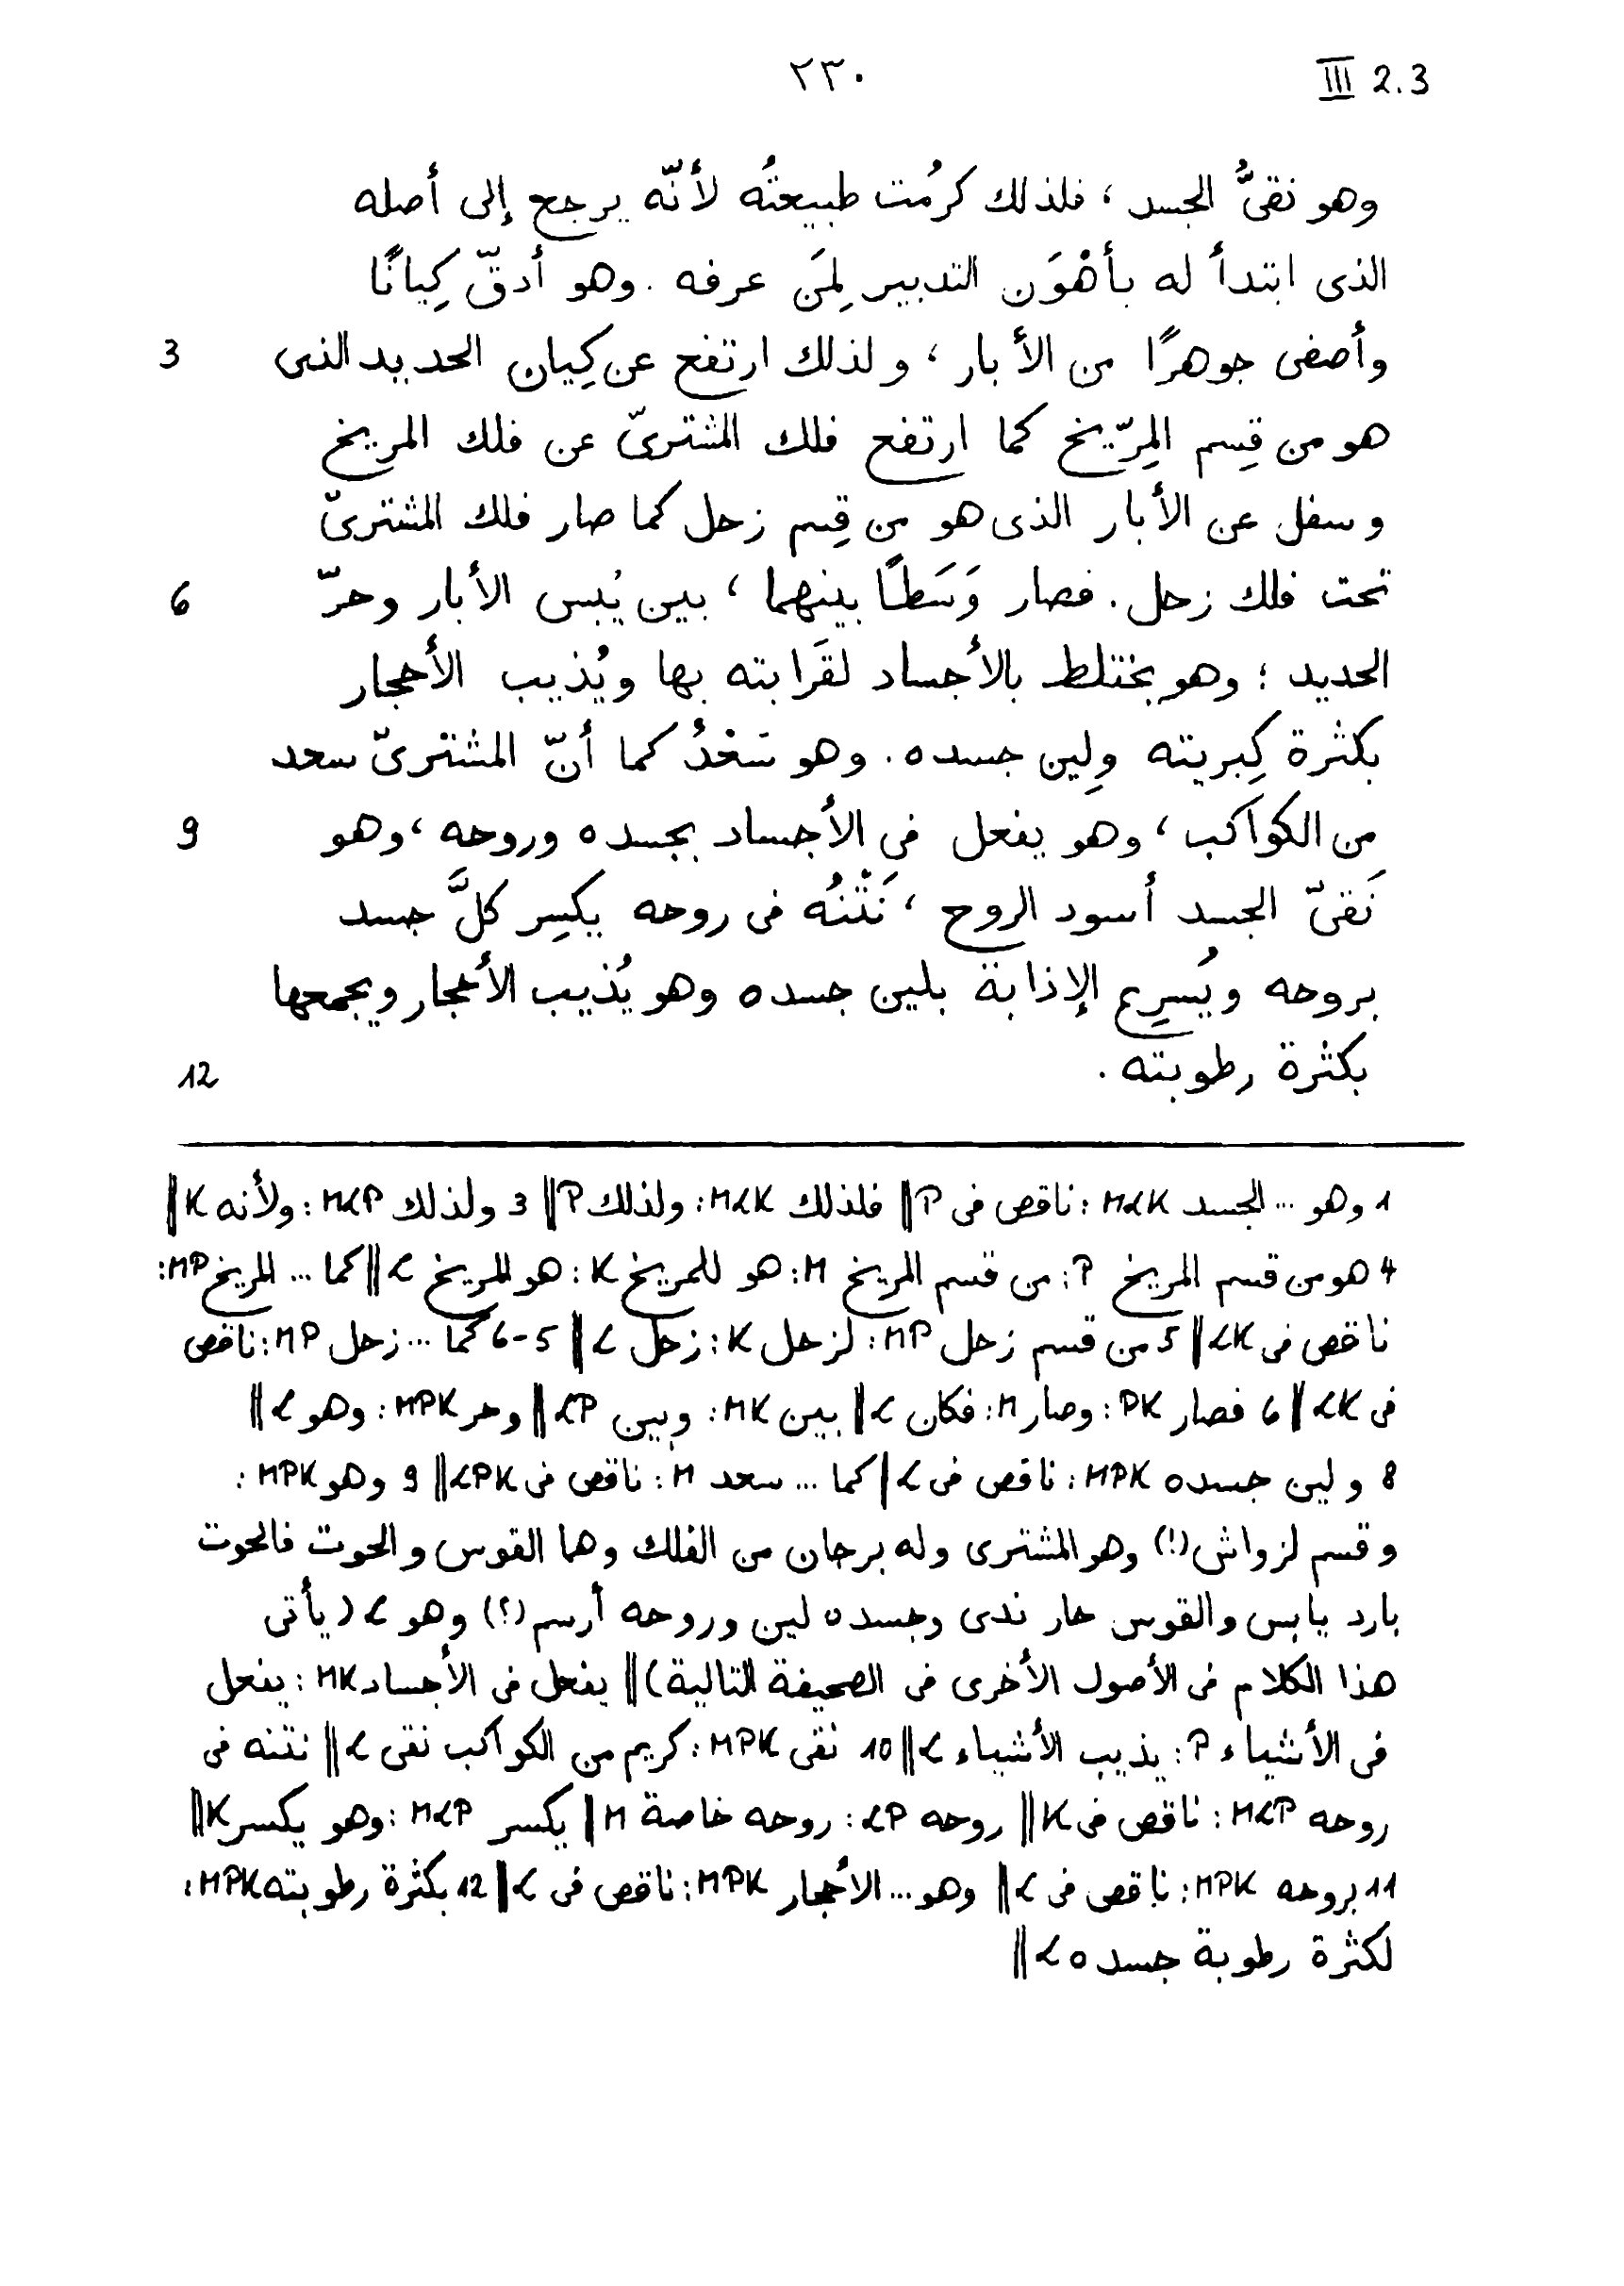 ٢٣٠
III 2.3
وهو نقىُّ الجسد ، فلذلك كرُمت طبيعتُه لأنّه يرجع إلى أصله
الذى ابتدأ له بأهْوَن التدبير لِمَن عرفه . وهو أدقّ كِيانًا
وأصفى جوهرًا من الأبار ، ولذلك ارتفع عن كِيان الحديد الذى 3
هو من قِسم المِرّيخ كما ارتفع فلك المشترىّ عن فلك المريخ
وسفل عن الأبار الذى هو من قِسم زحل كما صار فلك المشترىّ
تحت فلك زحل . فصار وَسَطًا بينهما ، بين يُبس الأبار وحرّ 6
الحديد ؛ وهو يختلط بالأجساد لقَرابته بها ويُذيب الأحجار
بكثرة كِبريته ولِين جسده . وهو سَعْدُ كما أنّ المشترىّ سعد
من الكواكب ، وهو يفعل فى الأجساد بجسده وروحه ، وهو 9
نَقىّ الجسد أسود الروح ، نَتْنُه فى روحه يكسِر كلَّ جسد
بروحه ويُسرِع الإذابة بلين جسده وهو يُذيب الأحجار ويجمعها
بكثرة رطوبته . 12
1 وهو ... الجسد M<K : ناقص فى P || فلذلك M<K : ولذلك P || 3 ولذلك M<P : ولأنه K ||
4 هو من قسم المريخ P : من قسم المريخ M : هو للمريخ K : هو المريخ < || كما ... المريخ MP :
ناقص فى <K || 5 من قسم زحل MP : لزحل K : زحل < || 5-6 كما ... زحل MP : ناقص
فى <K || 6 فصار PK : وصار M : فكان < || بين MK : وبين <P || وحر MPK : وهو < ||
8 ولين جسده MPK : ناقص فى < || كما ... سعد M : ناقص فى <PK || 9 وهو MPK :
وقسم لزواش (!) وهو المشترى وله برجان من الفلك وهما القوس والحوت فالحوت
بارد يابس والقوس حار ندى وجسده لين وروحه أرسم (؟) وهو < (يأتى
هذا الكلام فى الأصول الأخرى فى الصحيفة التالية) || يفعل فى الأجساد MK : يفعل
فى الأشياء P : يذيب الأشياء < || 10 نقى MPK : كريم من الكواكب نقى < || نتنه فى
روحه M<P : ناقص فى K || روحه <P : روحه خاصة M || يكسر M<P : وهو يكسر K ||
11 بروحه MPK : ناقص فى < || وهو ... الأحجار MPK : ناقص فى < || 12 بكثرة رطوبته MPK :
لكثرة رطوبة جسده < ||